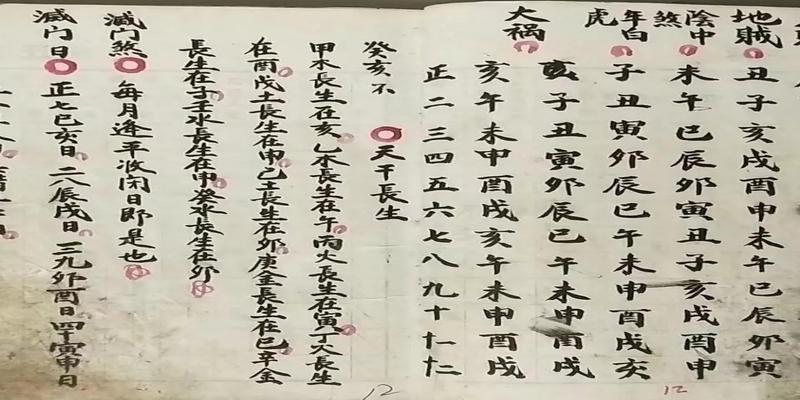 地賊 丑子亥戌酉申未午巳辰卯寅
陰中煞 未午巳辰卯寅丑子亥戌酉申
年白虎 子丑寅卯辰巳午未申酉戌亥
亥子丑寅卯辰巳午未申酉戌
大禍 亥午未申酉戌亥午未申酉戌
正二三四五六七八九十
癸亥不 天干長生
甲木長生在亥乙木長生在午丙火長生在寅丁火長生
在酉戊土長生在申己土長生在卯庚金長生在巳辛金
長生在子壬水長生在申癸水長生在卯
滅门煞 每月逢平收闭日即是也
滅门日 正七巳亥日二八辰戌日三九卯酉日四十寅申日